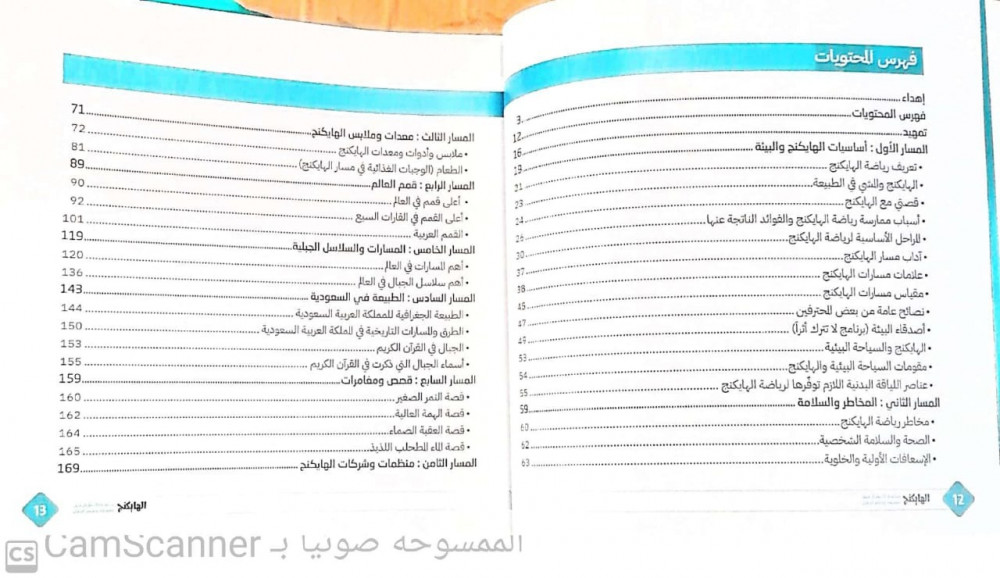 فهرس المحتويات
إهداء 3
فهرس المحتويات 12
تمهيد 16
المسار الأول : أساسيات الهايكنج والبيئة 19
• تعريف رياضة الهايكنج 21
• الهايكنج والمشي في الطبيعة 23
• قصتي مع الهايكنج 24
• أسباب ممارسة رياضة الهايكنج والفوائد الناتجة عنها 26
• المراحل الأساسية لرياضة الهايكنج 30
• آداب مسار الهايكنج 37
• علامات مسارات الهايكنج 38
• مقياس مسارات الهايكنج 45
• نصائح عامة من بعض المحترفين 47
• أصدقاء البيئة (برنامج لا تترك أثراً) 49
• الهايكنج والسياحة البيئية 53
• مقومات السياحة البيئية والهايكنج 54
• عناصر اللياقة البدنية اللازم توفّرها لرياضة الهايكنج 55
المسار الثاني : المخاطر والسلامة 59
• مخاطر رياضة الهايكنج 60
• الصحة والسلامة الشخصية 62
• الإسعافات الأولية والخلوية 63
الهايكنج 12
المسار الثالث : معدات وملابس الهايكنج 71
• ملابس وأدوات ومعدات الهايكنج 72
• الطعام (الوجبات الغذائية في مسار الهايكنج) 81
المسار الرابع : قمم العالم 89
• أعلى قمم في العالم 90
• أعلى القمم في القارات السبع 92
• القمم العربية 101
المسار الخامس : المسارات والسلاسل الجبلية 119
• أهم المسارات في العالم 120
• أهم سلاسل الجبال في العالم 136
المسار السادس : الطبيعة في السعودية 143
• الطبيعة الجغرافية للمملكة العربية السعودية 144
• الطرق والمسارات التاريخية في المملكة العربية السعودية 150
• الجبال في القرآن الكريم 153
• أسماء الجبال التي ذكرت في القرآن الكريم 155
المسار السابع : قصص ومغامرات 159
• قصة النمر الصغير 160
• قصة الهمة العالية 162
• قصة العقبة الصماء 164
• قصة الماء المطحلب اللذيذ 165
المسار الثامن : منظمات وشركات الهايكنج 169
الهايكنج 13
الممسوحه ضوئيا بـ CamScanner
CS